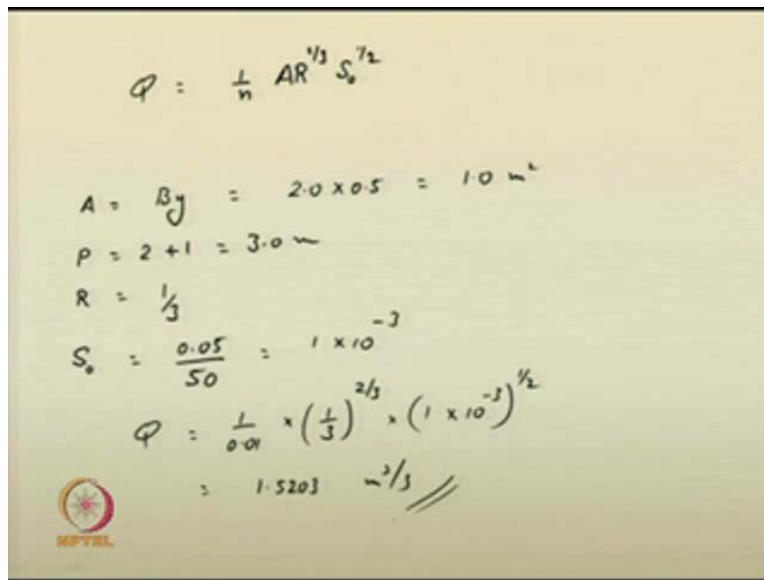 Q = 1/n AR^2/3 S₀^1/2
A = By = 2.0 x 0.5 = 1.0 m²
P = 2 + 1 = 3.0 m
R = 1/3
S₀ = 0.05/50 = 1 x 10^-3
Q = 1/0.01 x (1/3)^2/3 x (1 x 10^-3)^1/2
= 1.5203 m³/s
NPTEL